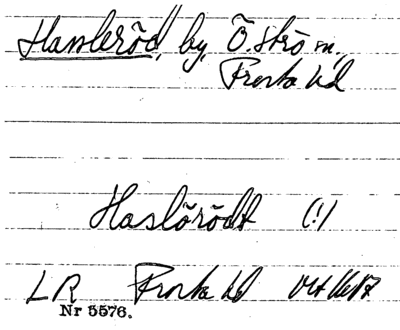 Hassleröd, by, Ö. Strö sn,
Frosta hd
Haslörödt (!)
LR Frosta hd
Nr 5576.